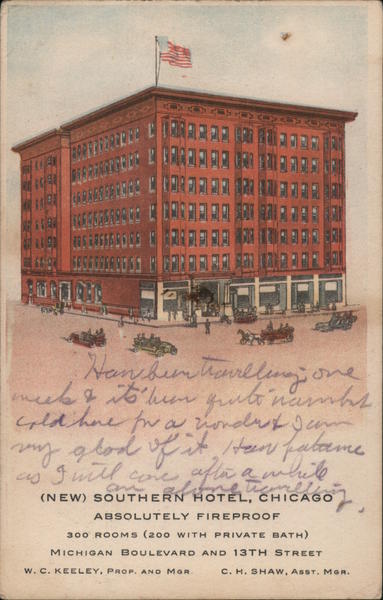 Have been travelling one
week & it's been quite warm but
cold here for a wonder & I am
very glad of it Have
as I will come after a while
am alone travelling.
(NEW) SOUTHERN HOTEL, CHICAGO
ABSOLUTELY FIREPROOF
300 ROOMS (200 WITH PRIVATE BATH)
MICHIGAN BOULEVARD AND 13TH STREET
W. C. KEELEY, PROP. AND MGR. C. H. SHAW, ASST. MGR.